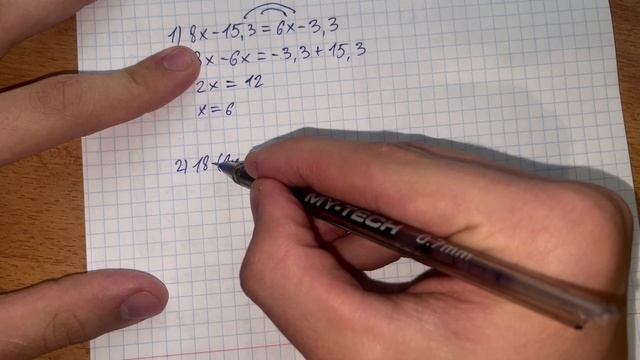 1) 8x-15,3=6x-3,3
8x-6x=-3,3+15,3
2x=12
x=6
2) 18-
MY-TECH 0.7mm